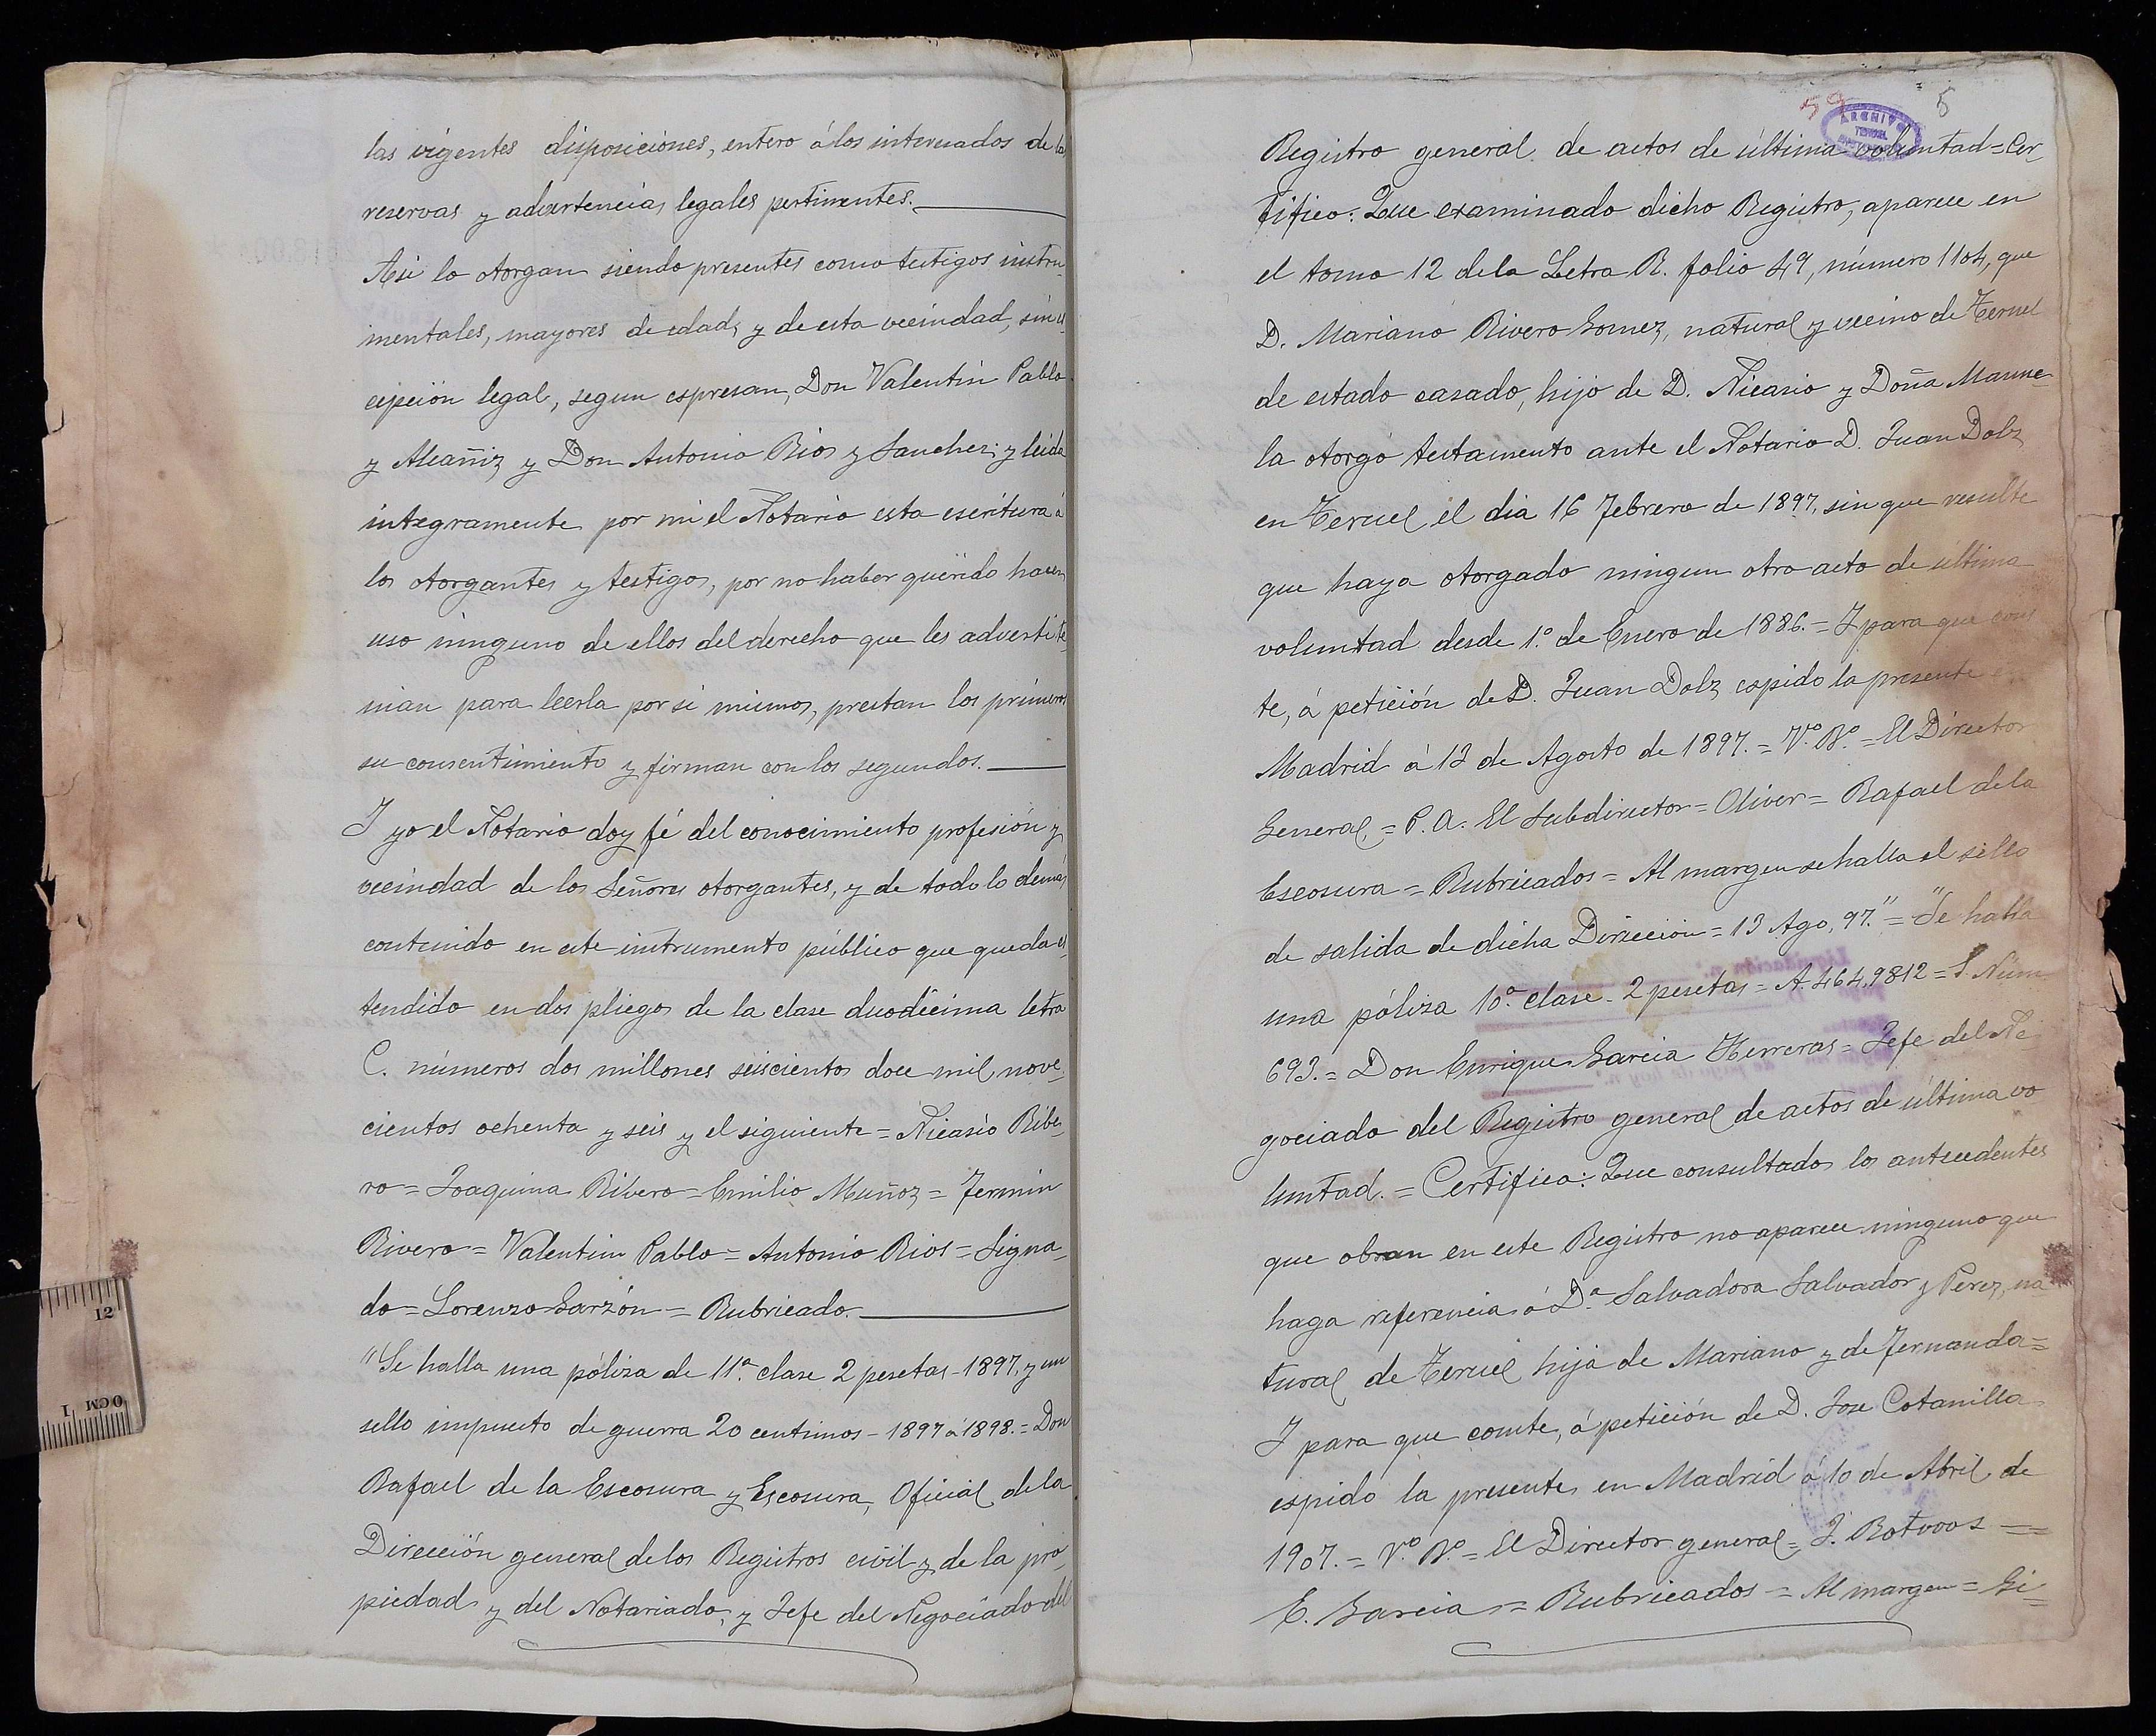 las vigentes disposiciones, entero á los interesados de las
reservas y advertencias legales pertinentes.
Asi lo otorgan siendo presentes como testigos instru-
mentales, mayores de edad, y de esta vecindad, sin es
cepción legal, segun espresan, Don Valentin Pablo
y Alcañiz y Don Antonio Rios y Sanchez; y leida
integramente por mi el Notario esta escritura á
los otorgantes y testigos, por no haber querido hacer
uso ninguno de ellos del derecho que les advertí te
nian para leerla por si mismos, prestan los primeros
su consentimiento y firman con los segundos.
Y yo el Notario doy fé del conocimiento profesión y
vecindad de los Señores otorgantes, y de todo lo demás
contenido en este instrumento público que queda es
tendido en dos pliegos de la clase duodécima letra
C. números dos millones seiscientos doce mil nove-
cientos ochenta y seis y el siguiente = Nicasio Ribe-
ro = Joaquina Ribero = Emilio Muñoz = Fermin
Rivero = Valentin Pablo = Antonio Rios = Signa-
do = Lorenzo Garzón = Rubricado.
"Se halla una póliza de 11ª clase 2 pesetas - 1897, y un
sello impuesto de guerra 20 centimos - 1897 á 1898. = Don
Rafael de la Escosura y Escosura, Oficial de la
Dirección general de los Registros civil y de la pro-
piedad y del Notariado, y Jefe del Negociado del
59
5
ARCHIVO
TERUEL
Registro general de actos de última voluntad = Cer-
tifico: Que examinado dicho Registro, aparece en
el tomo 12 de la Letra R. folio 49, número 1104, que
D. Mariano Rivero Gomez, natural y vecino de Teruel
de estado casado, hijo de D. Nicasio y Doña Manue-
la otorgó testamento ante el Notario D. Juan Dolz
en Teruel el dia 16 Febrero de 1897, sin que resulte
que haya otorgado ningun otro acto de última
voluntad desde 1.º de Enero de 1886. = Y para que cons
te, á petición de D. Juan Dolz espido la presente en
Madrid á 13 de Agosto de 1897. = V.º B.º = El Director
General = P. A. El Subdirector = Oliver = Rafael de la
Escosura = Rubricados = Al margen se halla el sello
de salida de dicha Dirección = 13 Ago, 97." = "Se halla
una póliza 10.ª clase - 2 pesetas - A. 464,9812 = S. Núm
693. = Don Enrique Garcia Herreras = Jefe del Ne
gociado del Registro general de actos de última vo
luntad. = Certifica: Que consultados los antecedentes
que obran en este Registro no aparece ninguno que
haga referencia á D.ª Salvadora Salvador y Perez, na
tural de Teruel hija de Mariano y de Fernanda =
Y para que conste, á petición de D. Jose Cotanilla
espido la presente en Madrid á 10 de Abril de
1907. = V.º B.º = El Director general =
E. Garcia = Rubricados = Al margen = Gi=
12
1 0CM